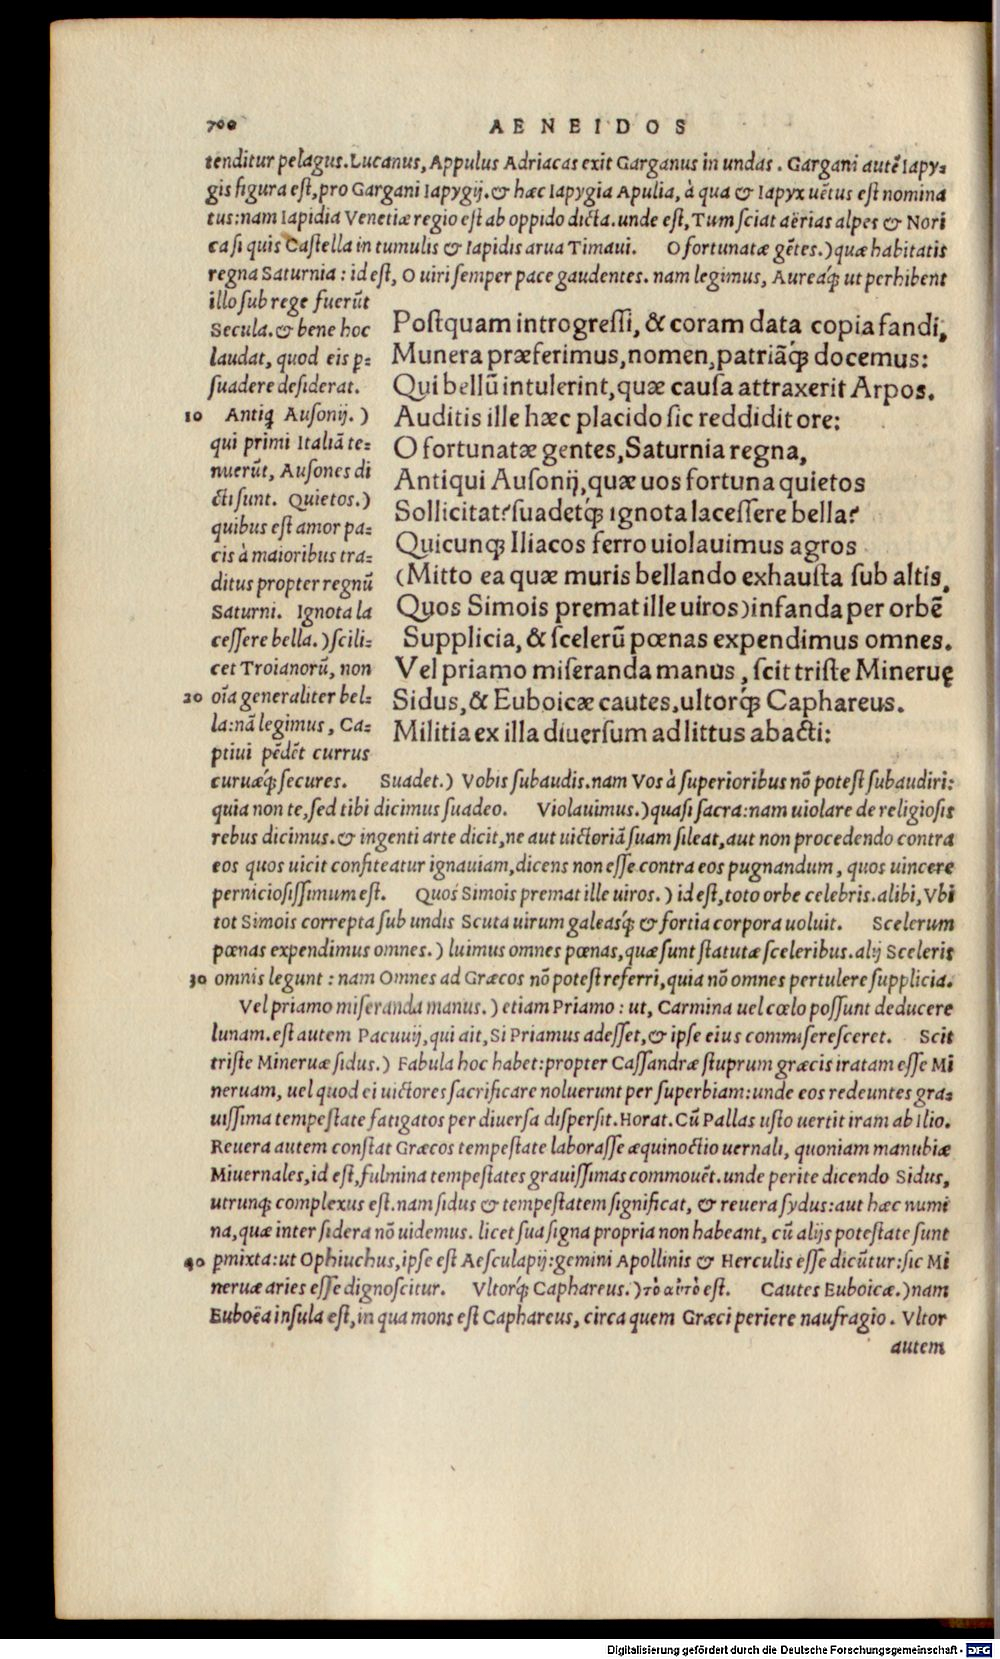 700
AENEIDOS
tenditur pelagus. Lucanus, Appulus Adriacas exit Garganus in undas . Gargani autẽ Iapy-
gis figura est, pro Gargani Iapygij. & hæc Iapygia Apulia, à qua & Iapyx uẽtus est nomina
tus: nam Iapidia Venetiæ regio est ab oppido dicta. unde est, Tum sciat aërias alpes & Nori
ca si quis Castella in tumulis & Iapidis arua Timaui. O fortunatæ gẽtes.) quæ habitatis
regna Saturnia : id est, O uiri semper pace gaudentes. nam legimus, Aureaq́; ut perhibent
illo sub rege fuerũt
Secula. & bene hoc
laudat, quod eis p̱-
suadere desiderat.
10 Antiq Ausonij. )
qui primi Italiã te-
nuerũt, Ausones di
cti sunt. Quietos.)
quibus est amor pa-
cis à maioribus tra-
ditus propter regnũ
Saturni. Ignota la
cessere bella.) scili-
cet Troianorũ, non
20 oĩa generaliter bel-
la: nã legimus, Ca-
ptiui pẽdẽt currus
Postquam introgressi, & coram data copia fandi,
Munera præferimus, nomen, patriãq́; docemus:
Qui bellũ intulerint, quæ causa attraxerit Arpos.
Auditis ille hæc placido sic reddidit ore:
O fortunatæ gentes, Saturnia regna,
Antiqui Ausonij, quæ uos fortuna quietos
Sollicitat? suadetq́; ignota lacessere bella?
Quicunq; Iliacos ferro uiolauimus agros
(Mitto ea quæ muris bellando exhausta sub altis,
Quos Simois premat ille uiros) infanda per orbẽ
Supplicia, & scelerũ pœnas expendimus omnes.
Vel priamo miseranda manus, scit triste Mineruę
Sidus, & Euboicæ cautes, ultorq́; Caphareus.
Militia ex illa diuersum ad littus abacti:
curuæq́; secures. Suadet.) Vobis subaudis. nam Vos à superioribus nõ potest subaudiri:
quia non te, sed tibi dicimus suadeo. Violauimus.) quasi sacra: nam uiolare de religiosis
rebus dicimus. & ingenti arte dicit, ne aut uictoriã suam sileat, aut non procedendo contra
eos quos uicit confiteatur ignauiam, dicens non esse contra eos pugnandum, quos uincere
perniciosissimum est. Quos Simois premat ille uiros.) id est, toto orbe celebris. alibi, Vbi
tot Simois correpta sub undis Scuta uirum galeasq́; & fortia corpora uoluit. Scelerum
pœnas expendimus omnes.) luimus omnes pœnas, quæ sunt statutæ sceleribus. alij Sceleris
30 omnis legunt : nam Omnes ad Græcos nõ potest referri, quia nõ omnes pertulere supplicia.
Vel priamo miseranda manus.) etiam Priamo : ut, Carmina uel cœlo possunt deducere
lunam. est autem Pacuuij, qui ait, Si Priamus adesset, & ipse eius commiseresceret. Scit
triste Mineruæ sidus.) Fabula hoc habet: propter Cassandræ stuprum græcis iratam esse Mi
neruam, uel quod ei uictores sacrificare noluerunt per superbiam: unde eos redeuntes gra-
uissima tempestate fatigatos per diuersa dispersit. Horat. Cũ Pallas usto uertit iram ab Ilio.
Reuera autem constat Græcos tempestate laborasse æquinoctio uernali, quoniam manubiæ
Miuernales, id est, fulmina tempestates grauissimas commouẽt. unde perite dicendo Sidus,
utrunq; complexus est. nam sidus & tempestatem significat, & reuera sydus: aut hæc numi
na, quæ inter sidera nõ uidemus. licet sua signa propria non habeant, cũ alijs potestate sunt
40 pmixta: ut Ophiuchus, ipse est Aesculapij: gemini Apollinis & Herculis esse dicũtur: sic Mi
neruæ aries esse dignoscitur. Vltorq́; Caphareus.) τὸ αἰτὸ est. Cautes Euboicæ.) nam
Euboëa insula est, in qua mons est Caphareus, circa quem Græci periere naufragio. Vltor
autem
Digitalisierung gefördert durch die Deutsche Forschungsgemeinschaft - DFG